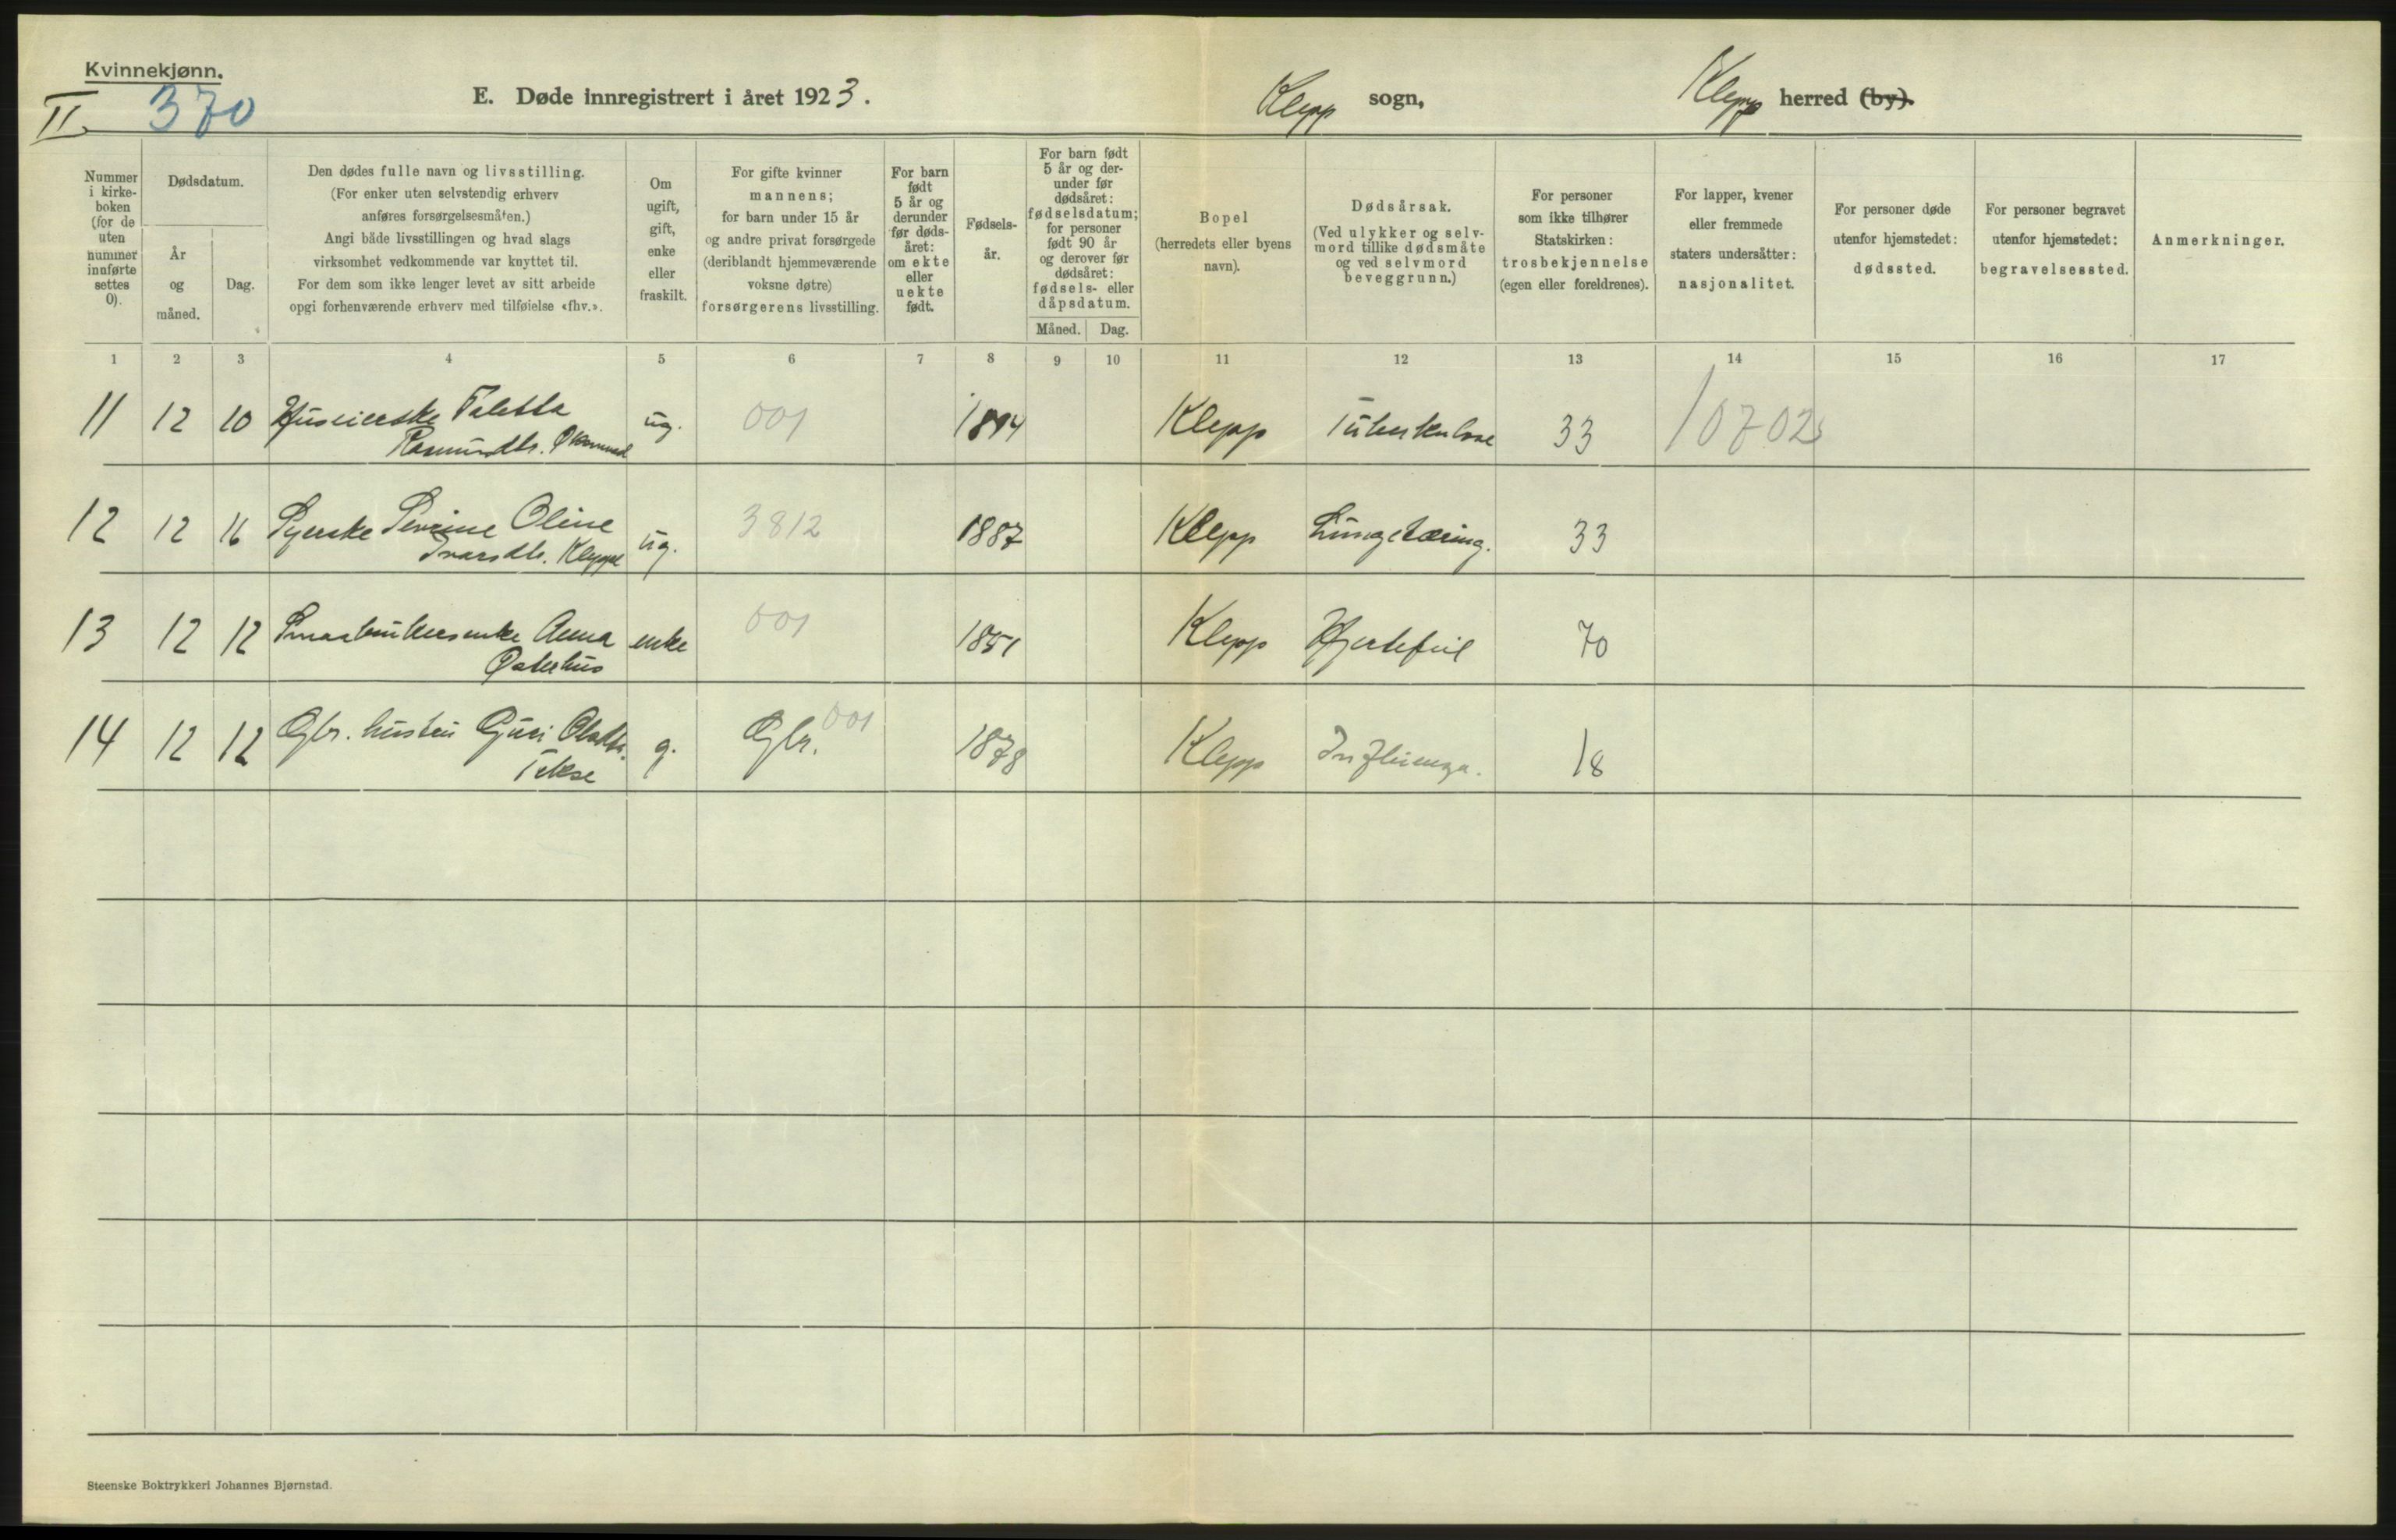 Kvinnekjønn.
II. 370
E. Døde innregistrert i året 1923.
Klepp sogn,
Klepp herred (by).
Nummer
i kirke-
boken
(for de
uten
nummer
innførte
settes
0).
Dødsdatum.
År
og
måned.
Dag.
Den dødes fulle navn og livsstilling.
(For enker uten selvstendig erhverv
anføres forsørgelsesmåten.)
Angi både livsstillingen og hvad slags
virksomhet vedkommende var knyttet til.
For dem som ikke lenger levet av sitt arbeide
opgi forhenværende erhverv med tilføielse «fhv.».
Om
ugift,
gift,
enke
eller
fraskilt.
For gifte kvinner
mannens;
for barn under 15 år
og andre privat forsørgede
(deriblandt hjemmeværende
voksne døtre)
forsørgerens livsstilling.
For barn
født
5 år og
derunder
før døds-
året:
om ekte
eller
uekte
født.
Fødsels-
år.
For barn født
5 år og der-
under før
dødsåret:
fødselsdatum;
for personer
født 90 år
og derover før
dødsåret:
fødsels- eller
dåpsdatum.
Måned. Dag.
Bopel
(herredets eller byens
navn).
Dødsårsak.
(Ved ulykker og selv-
mord tillike dødsmåte
og ved selvmord
beveggrunn.)
For personer
som ikke tilhører
Statskirken:
trosbekjennelse
(egen eller foreldrenes).
For lapper, kvener
eller fremmede
staters undersåtter:
nasjonalitet.
For personer døde
utenfor hjemstedet:
dødssted.
For personer begravet
utenfor hjemstedet:
begravelsessted.
Anmerkninger.
1 2 3 4 5 6 7 8 9 10 11 12 13 14 15 16 17
11 12 10 Huseierske Taletta ug. 001 1894 Klepp Tuberkulose 33 10702
Rasmundtr.
12 12 16 Syerske Serine Oline ug. 3812 1887 Klepp Lungetæring. 33
Ivarsdtr. Kleppe
13 12 12 Smaabrukersenke Anna enke 001 1851 Klepp Hjertefeil 70
Østerhus
14 12 12 Gbr. hustru Guri Olsdtr. g. Gbr. 001 1878 Klepp Influenza. 18
Tikse
Steenske Boktrykkeri Johannes Bjørnstad.